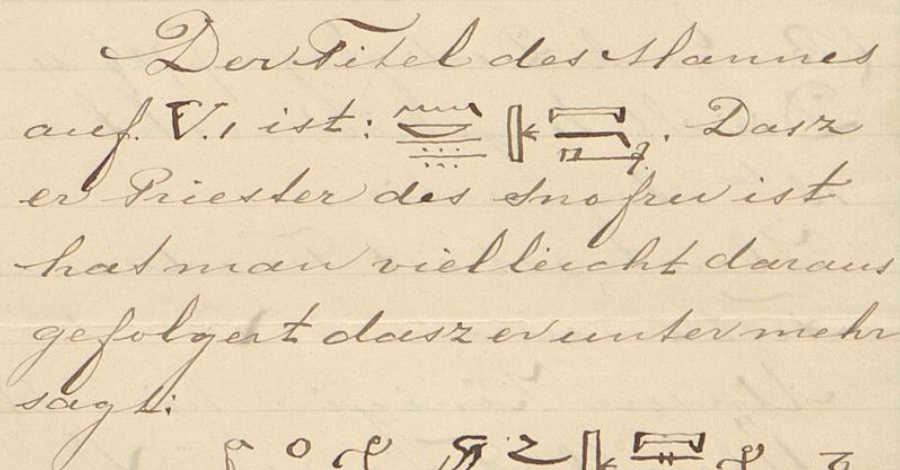 Der Titel des Mannes
auf V.1 ist: . Dasz
er Priester des Snofru ist
hat man vielleicht daraus
gefolgert dasz er unter mehr
sagt: